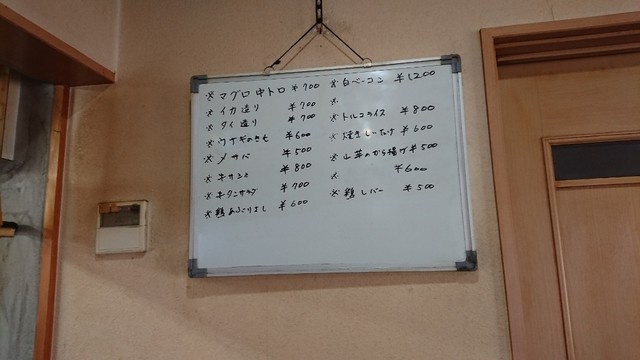 ※ マグロ中トロ ¥700
※ イカ造り ¥700
※ タイ造り ¥700
※ ウナギのきも ¥600
※ メサバ ¥500
※ キサンと ¥800
※ キタニサラダ ¥700
※ 鶏あぶりさし ¥600
※ 白ベーコン ¥1200
※
※ トルコライス ¥800
※ 焼きしいたけ ¥600
※ 山芋のから揚げ ¥500
※ ¥600
※ 鶏レバー ¥500